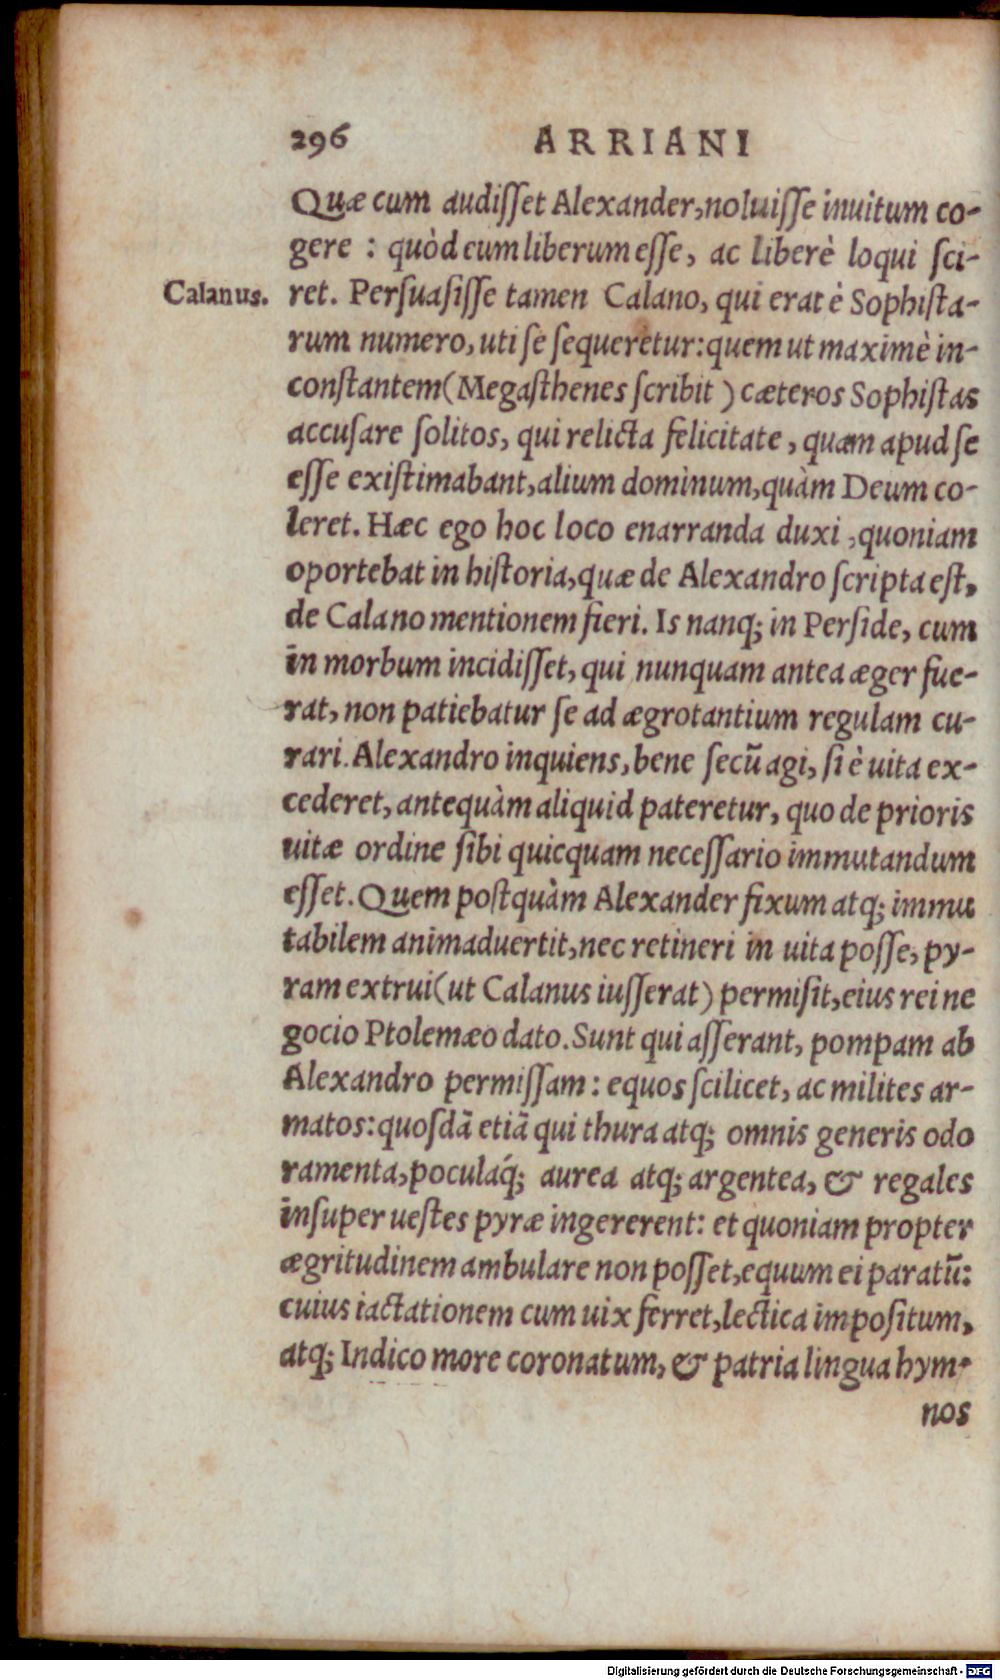 296 ARRIANI
Quæ cum audiſſet Alexander, noluiſſe inuitum co-
gere : quòd eum liberum eſſe, ac liberè loqui ſci-
Calanus. ret. Perſuaſiſſe tamen Calano, qui erat è Sophiſta-
rum numero, uti ſe ſequeretur: quem ut maximè in-
conſtantem (Megaſthenes ſcribit ) cæteros Sophiſtas
accuſare ſolitos, qui relicta felicitate , quam apud ſe
eſſe exiſtimabant, alium dominum, quàm Deum co-
leret. Hæc ego hoc loco enarranda duxi , quoniam
oportebat in hiſtoria, quæ de Alexandro ſcripta eſt,
de Calano mentionem fieri. Is nanq; in Perſide, cum
in morbum incidiſſet, qui nunquam antea æger fue-
rat, non patiebatur ſe ad ægrotantium regulam cu-
rari. Alexandro inquiens, bene ſecū agi, ſi è uita ex-
cederet, antequàm aliquid pateretur, quo de prioris
uitæ ordine ſibi quicquam neceſſario immutandum
eſſet. Quem poſtquàm Alexander fixum atq; immu
tabilem animaduertit, nec retineri in uita poſſe, py-
ram extrui (ut Calanus iuſſerat) permiſit, eius rei ne
gocio Ptolemæo dato. Sunt qui aſſerant, pompam ab
Alexandro permiſſam : equos ſcilicet, ac milites ar-
matos: quoſdā etiā qui thura atq; omnis generis odo
ramenta, poculaq́; aurea atq; argentea, & regales
inſuper ueſtes pyræ ingererent: et quoniam propter
ægritudinem ambulare non poſſet, equum ei paratū:
cuius iactationem cum uix ferret, lectica impoſitum,
atq; Indico more coronatum, & patria lingua hym-
nos
Digitalisierung gefördert durch die Deutsche Forschungsgemeinschaft - DFG